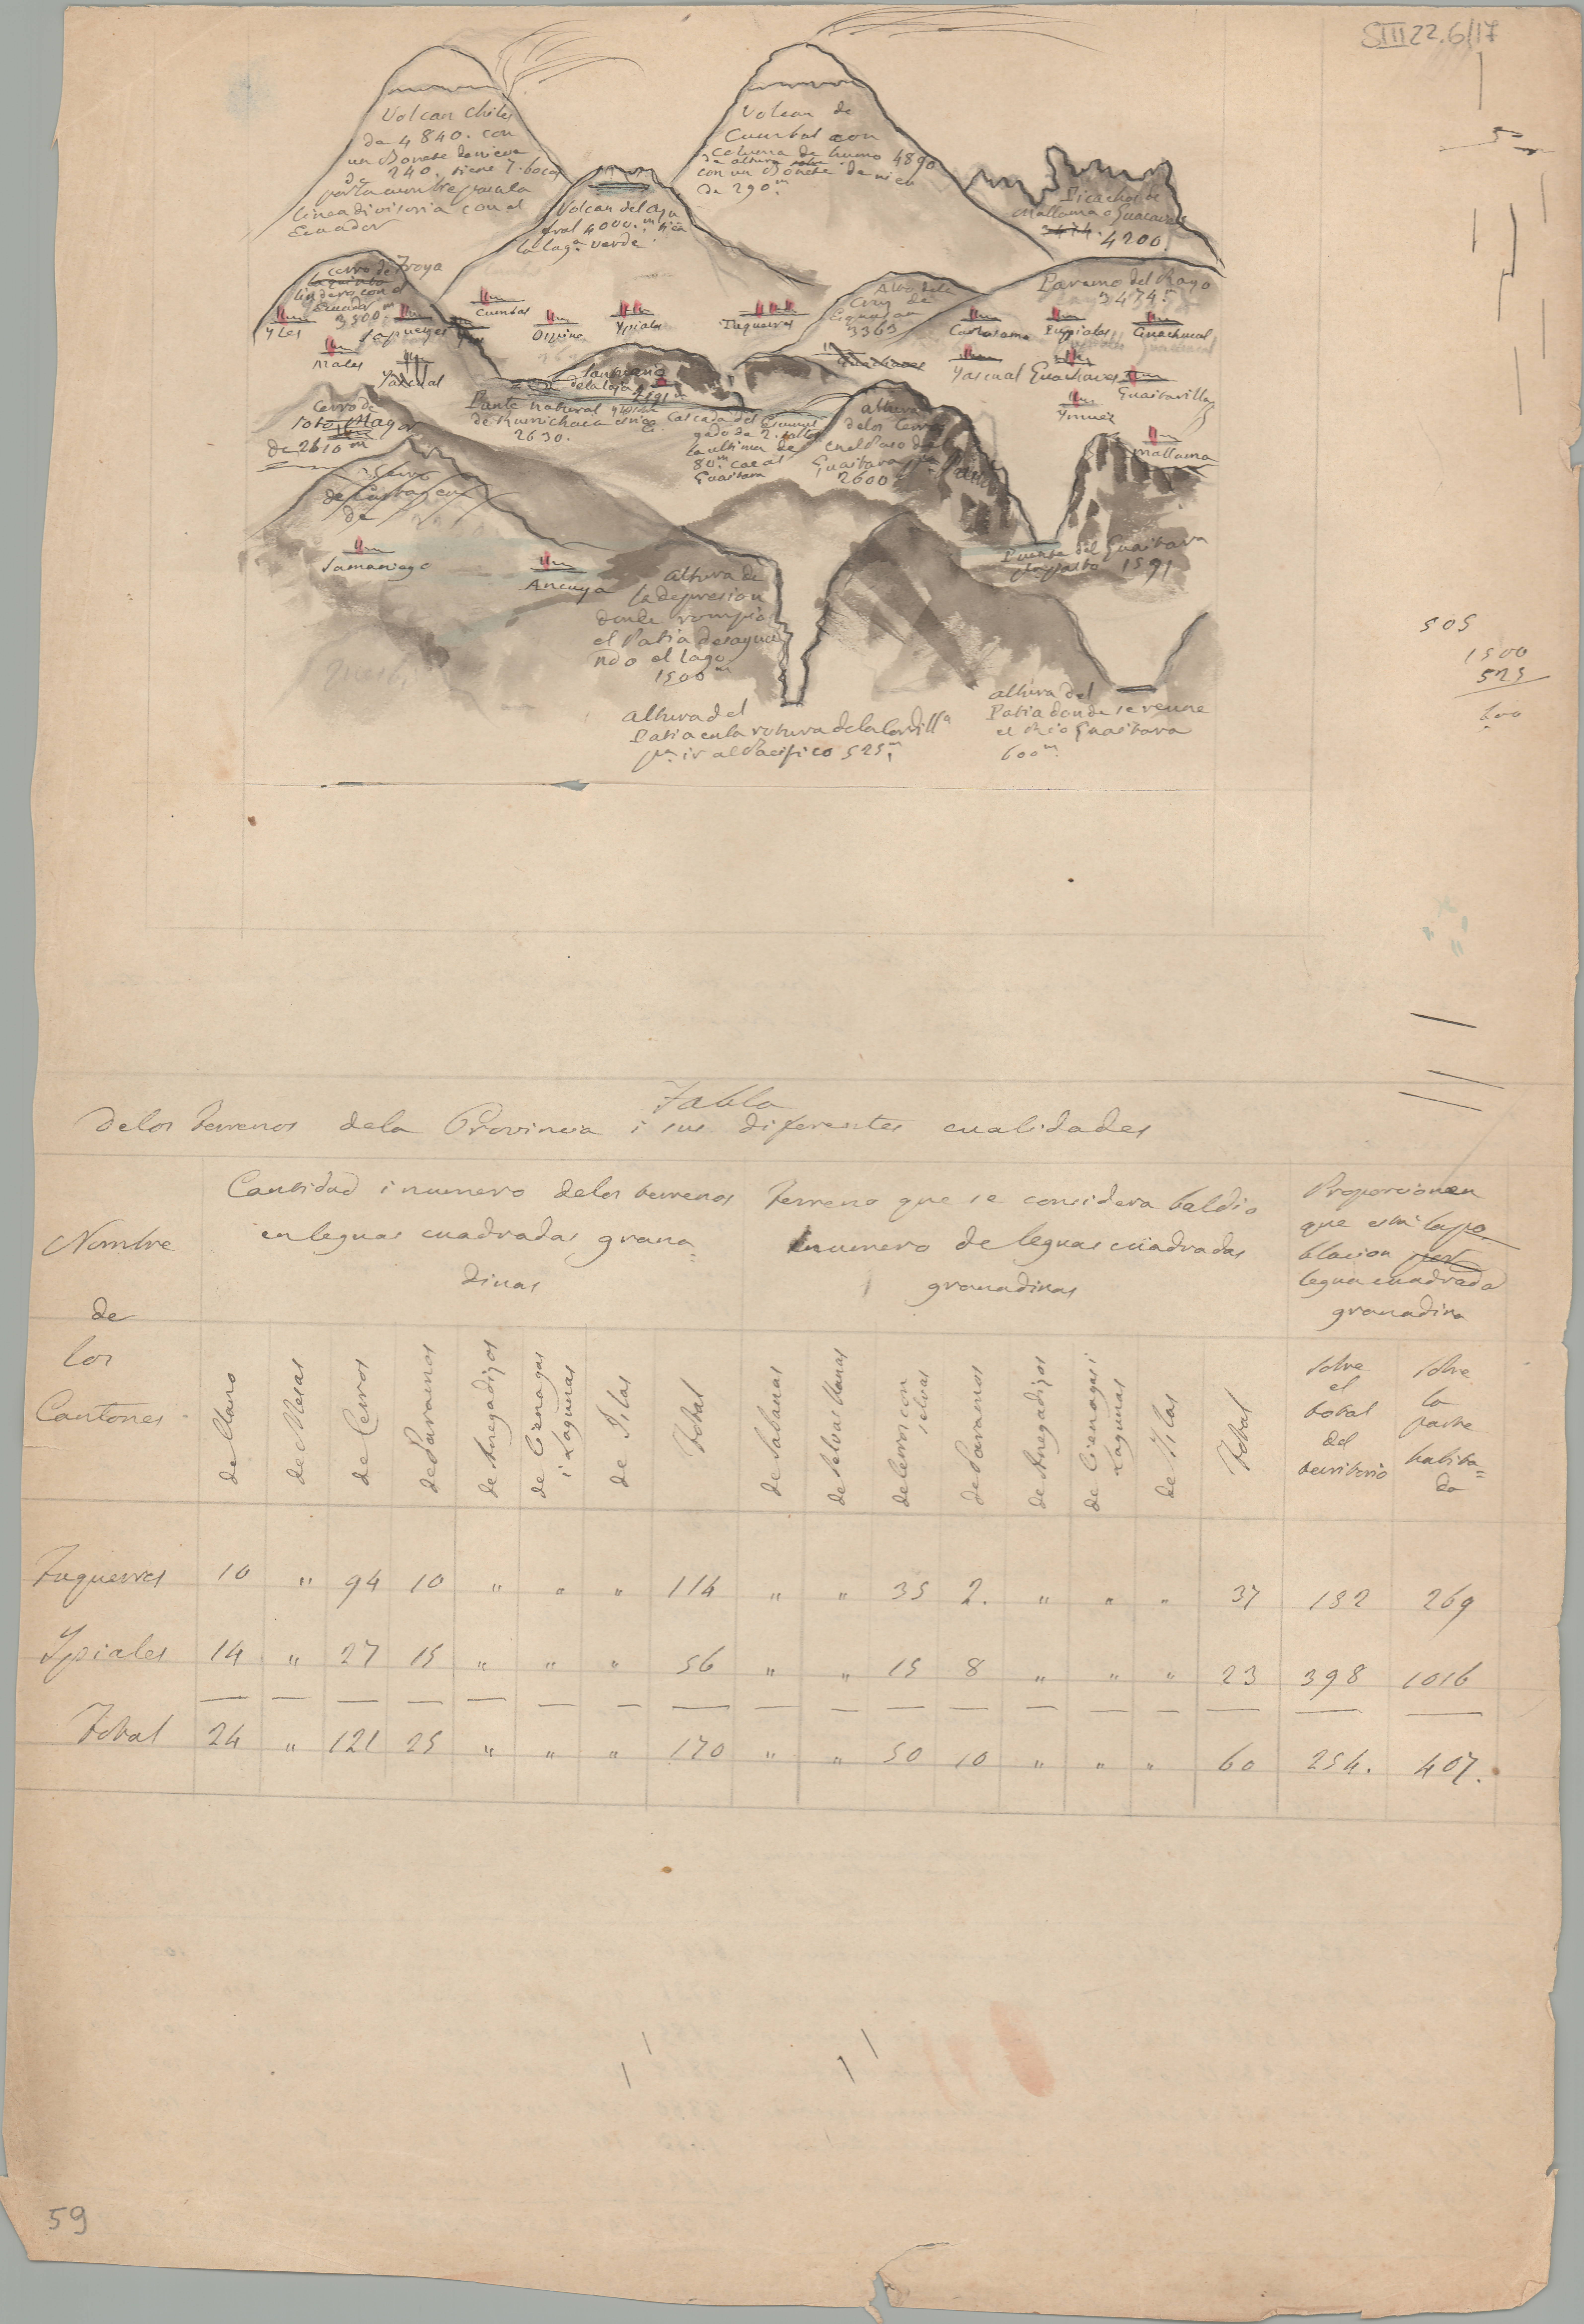 SIII 22.6/17
Volcan Chiles
da 4840. con
un Bonete de nieve
de 240. tiene 7. bocas
por la cumbre pasa la
linea divisoria con el
Ecuador
Volcan de
Cumbal con
columna de humo 4890
de altura
con un Bonete de nieve
de 290.m
Volcan del Azu
fral 4000.m tiene
la lag.a verde
Picachos de
Mallama o Guacaves
3474. 4200.
Cerro de Troya
lindero con el
Ecuador m
3500.
Paramo del Rayo
34745
Alto de la
Cruz de
3363
Yles
Sapueyes
Cumbal
Ospina
Ypiales
Tuquerres
Carlosama
Pupiales
Guachucal
Males
Yascual
Guachaves
Yascual
Guachaves
Guaitarilla
Ymues
Mallama
Santuario
de la laja
2591
Cerro de
Poto Mayor
de 2610 m
Puente natural
de Rumichaca
2630.
Cascada del
de 2. saltos
la ultima de
80.m cae al
Guaitara
altura
de los Cerros
en el Paso de
Guaitara
2600
Cerro
de
de
Samaniego
Ancuya
altura de
la depresion
donde rompio
el Patia desagua
ndo el lago
1500 m
Puente del Guaitara
1591
altura del
Patia en la rotura de la Cordill.a
p.a ir al Pacifico 525.m
altura del
Patia donde se reune
el Rio Guaitara
600.m
505
1500
525
600
Tabla
de los terrenos de la Provincia i sus diferentes cualidades
Nombre
de
los
Cantones
Cantidad i numero de los terrenos
en leguas cuadradas grana=
dinas
Terreno que se considera baldio
numero de leguas cuadradas
granadinas
Proporcion en
que está la po
blacion por
legua cuadrada
granadina
de llano
de Mesas
de Cerros
de Paramos
de Anegadizos
de Cienagas
i Lagunas
de Islas
Total
de Sabanas
de Selvas llanas
de Cerros con
selvas
de Paramos
de Anegadizos
de Cienagas i
Lagunas
de Islas
Total
sobre
el
total
del
territorio
sobre
la
parte
habita=
da
Tuquerres 10 " 94 10 " " " 114 " " 35 2. " " " 37 182 269
Ypiales 14 " 27 15 " " " 56 " " 15 8 " " " 23 398 1016
Total 24 " 121 25 " " " 170 " " 50 10 " " " 60 254. 407.
59